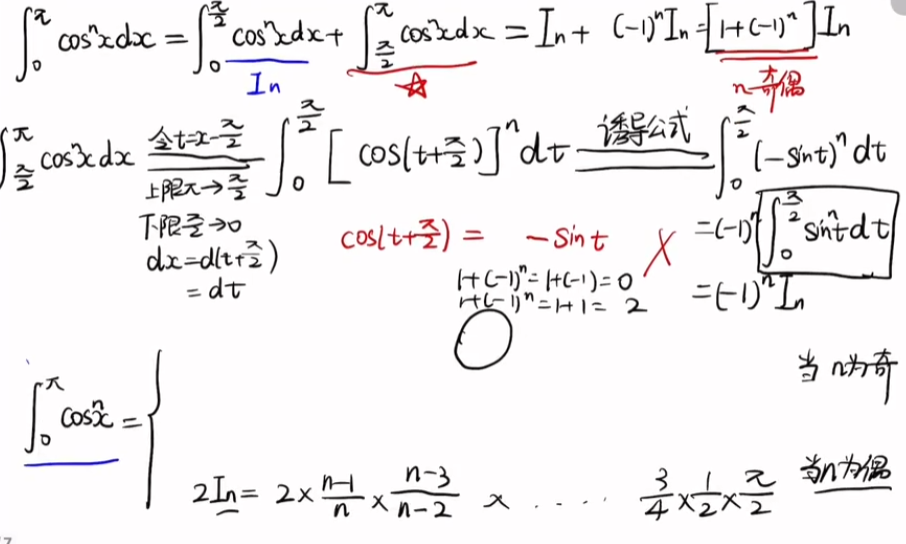 ∫₀^π cosⁿx dx = ∫₀^{π/2} cosⁿx dx + ∫_{π/2}^π cosⁿx dx = In + (-1)ⁿ In = [1+(-1)ⁿ] In
In ☆ n 奇偶
∫_{π/2}^π cosⁿx dx 令t=x-π/2 ∫₀^{π/2} [cos(t+π/2)]ⁿ dt 诱导公式 ∫₀^{π/2} (-sint)ⁿ dt
上限π→π/2
下限π/2→0
dx=d(t+π/2)
=dt
cos(t+π/2) = -sint
=(-1)ⁿ ∫₀^{π/2} sinⁿt dt
1+(-1)ⁿ=1+(-1)=0
1+(-1)ⁿ=1+1= 2
=(-1)ⁿ In
当 n为奇
∫₀^π cosⁿx =
2In = 2×(n-1)/n×(n-3)/(n-2) × ..... 3/4×1/2×π/2 当n为偶